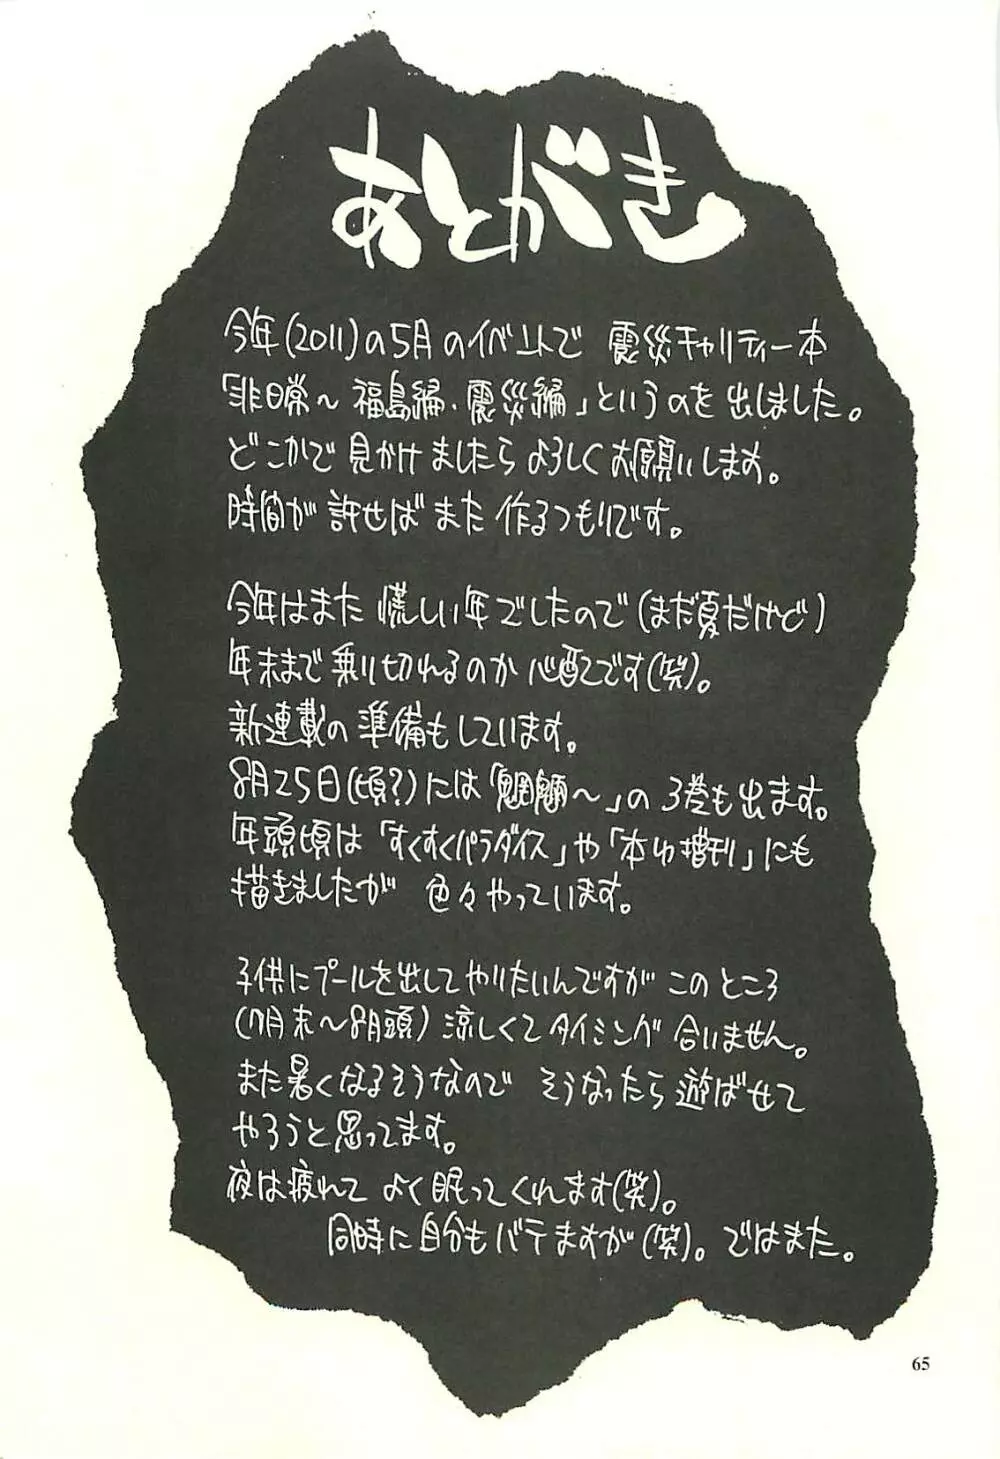 あとがき
今年(2011)の5月のイベントで 震災チャリティー本
「非日常〜福島編・震災編」というのを出しました。
どこかで見かけましたらよろしくお願いします。
時間が許せばまた作るつもりです。
今年はまた慌しい年でしたので(まだ夏だけど)
年末まで乗り切れるのか心配です(笑)。
新連載の準備もしています。
8月25日(頃?)には「魍魎〜」の3巻も出ます。
年頭頃は「すくすくパラダイス」や「本当増刊」にも
描きましたが 色々やっています。
子供にプールを出してやりたいんですがこのところ
(7月末〜8月頭)涼しくてタイミング合いません。
また暑くなるそうなので そうなったら遊ばせて
やろうと思ってます。
夜は疲れてよく眠ってくれます(笑)。
同時に自分もバテますが(笑)。ではまた。
65